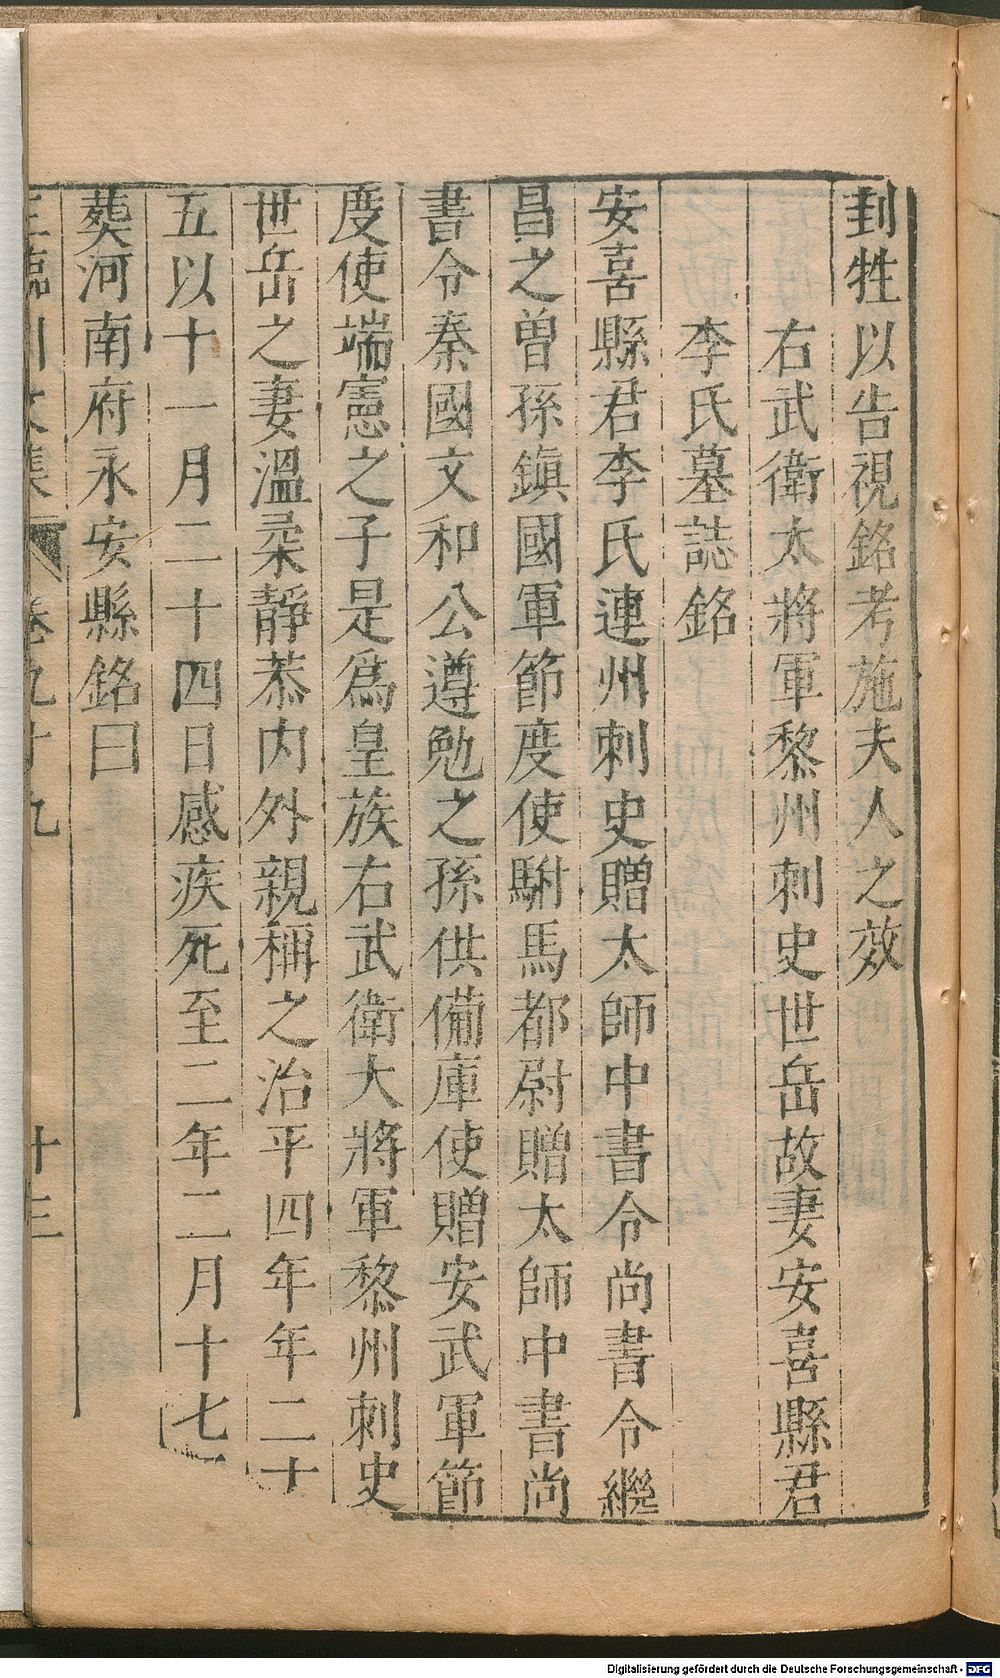 刲牲以告視銘考施夫人之效
右武衛太將軍黎州刺史世岳故妻安喜縣君
李氏墓誌銘
安喜縣君李氏連州刺史贈太師中書令尚書令繼
昌之曾孫鎭國軍節度使駙馬都尉贈太師中書尚
書令秦國文和公遵勉之孫供備庫使贈安武軍節
度使端憲之子是爲皇族右武衛大將軍黎州刺史
世岳之妻溫柔靜恭内外親稱之治平四年年二十
五以十一月二十四日感疾死至二年二月十七
葬河南府永安縣銘曰
王臨川文集 卷九十九 十三
Digitalisierung gefördert durch die Deutsche Forschungsgemeinschaft - DFG